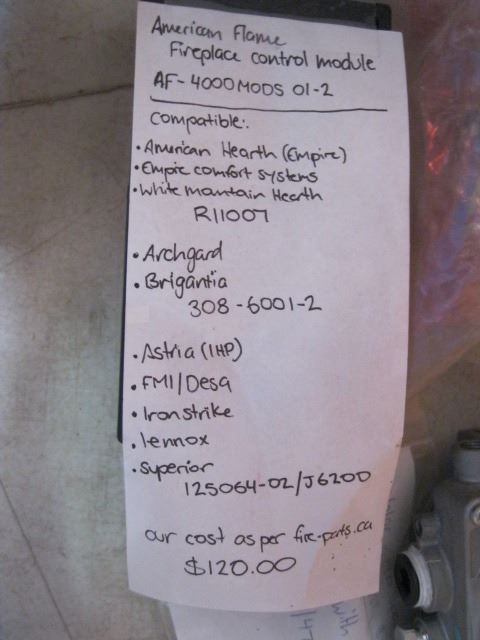 American Flame
Fireplace control module
AF-4000MODS 01-2
Compatible:
• American Hearth (Empire)
• Empire comfort systems
• White mantain Hearth
R11007
• Archgard
• Brigantia
308-6001-2
• Astria (IHP)
• FMI/Desa
• Iron strike
• lennox
• superior
125064-02/J620D
our cost as per fire-parts.ca
$120.00